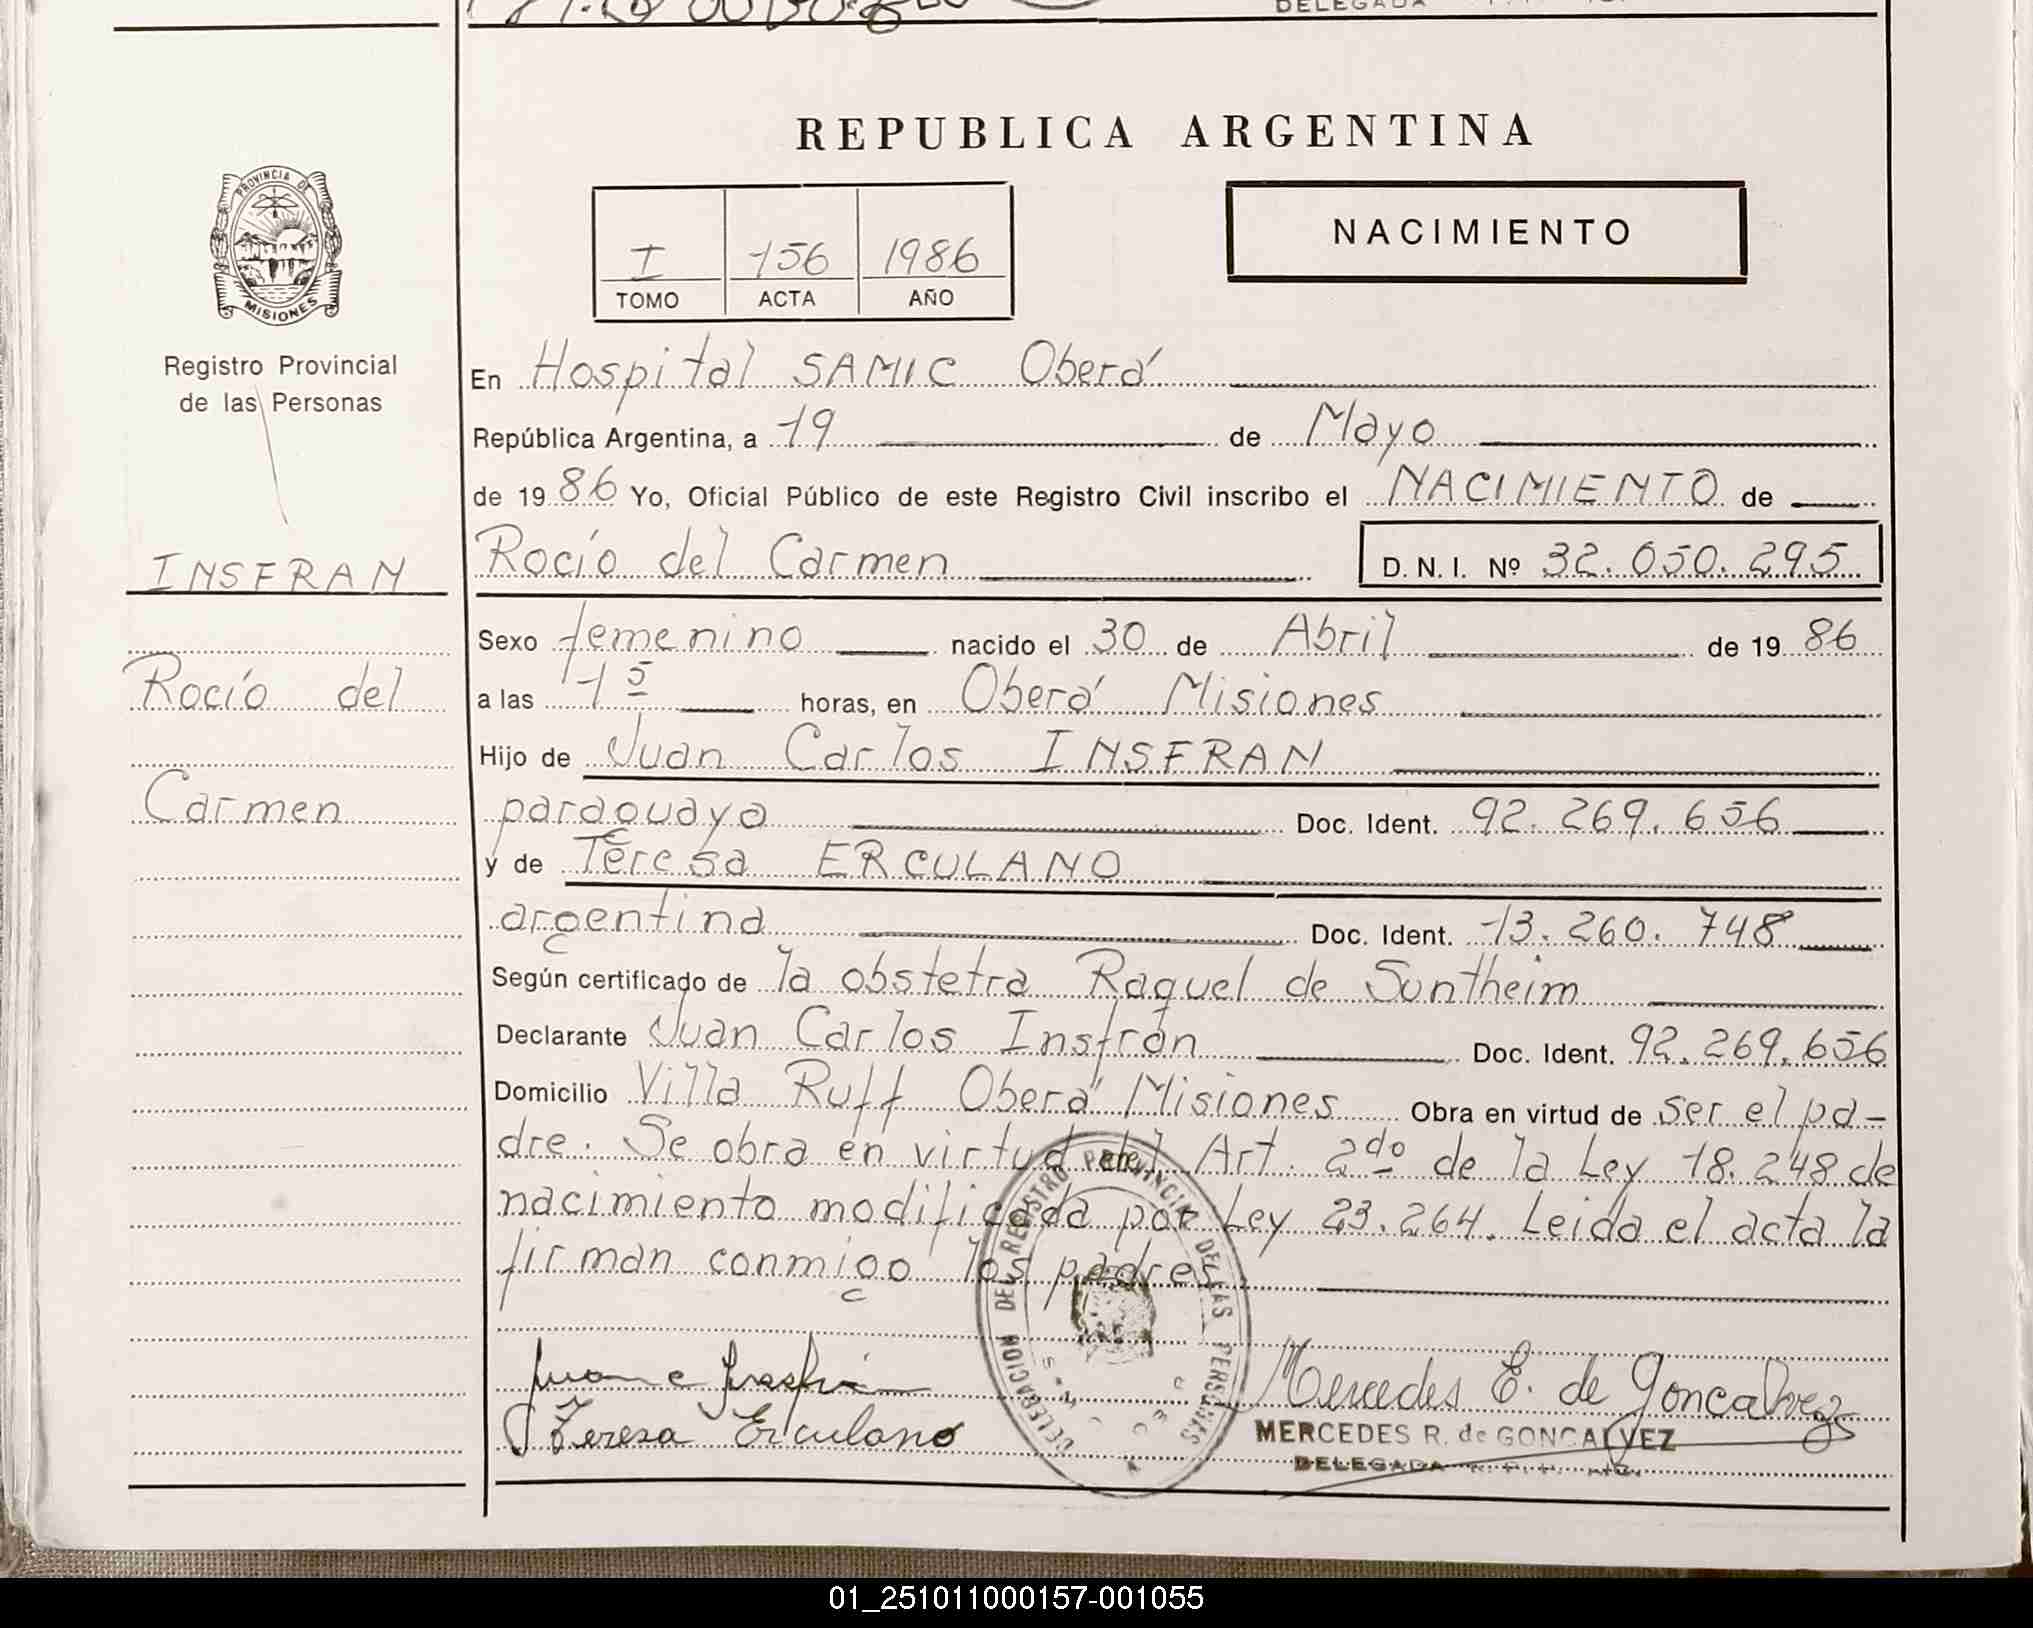 DELEGADA
REPUBLICA ARGENTINA
PROVINCIA DE
MISIONES
I 156 1986
TOMO ACTA AÑO
NACIMIENTO
Registro Provincial
de las Personas
INSFRAN
Rocío del
Carmen
En Hospital SAMIC Oberá
República Argentina, a 19 de Mayo
de 1986 Yo, Oficial Público de este Registro Civil inscribo el NACIMIENTO de
Rocío del Carmen D. N. I. Nº 32.050.295
Sexo femenino nacido el 30 de Abril de 1986
a las 15 horas, en Oberá Misiones
Hijo de Juan Carlos INSFRAN
paraguayo Doc. Ident. 92.269.656
y de Teresa ERCULANO
argentina Doc. Ident. 13.260.748
Según certificado de la obstetra Raquel de Suntheim
Declarante Juan Carlos Insfrán Doc. Ident. 92.269.656
Domicilio Villa Ruff Oberá Misiones Obra en virtud de ser el pa-
dre. Se obra en virtud del Art. 2do de la Ley 18.248 de
nacimiento modificada por Ley 23.264. Leida el acta la
firman conmigo los padres.
DELEGACION DEL REGISTRO PROVINCIAL DE LAS PERSONAS
Juan C Insfrán
Teresa Erculano
Mercedes E. de Goncalvez
MERCEDES R. de GONCALVEZ
DELEGADA
01_251011000157-001055